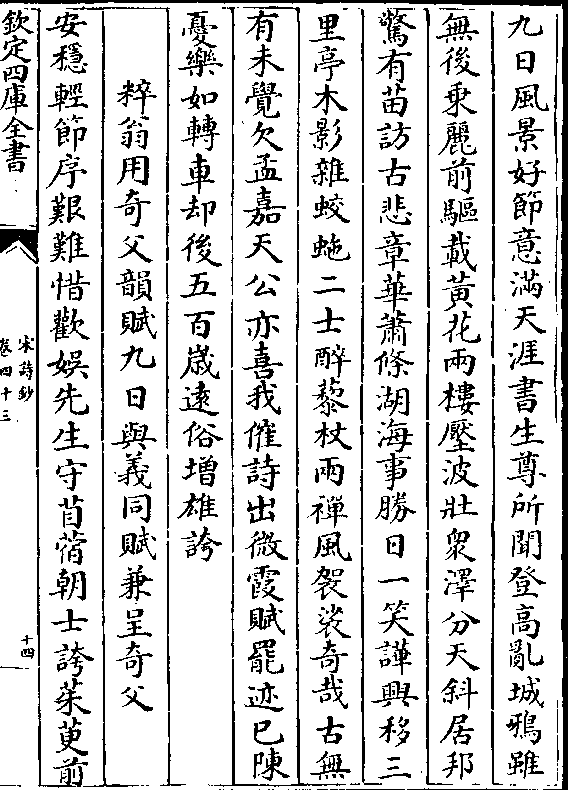 九日風景好節意滿天涯書生尊所聞登高亂城鴉雖
無後乗麗前驅載黃花兩樓壓波壯衆澤分天斜居邦
驚有苗訪古悲章華蕭條湖海事勝日一笑譁興移三
里亭木影雜蛟虵二士醉藜杖兩禪風袈裟奇哉古無
有未覺欠孟嘉天公亦喜我催詩出微霞賦罷迹已陳
憂樂如轉車却後五百歲逺俗増雄誇
粹翁用奇父韻賦九日與義同賦兼呈奇父
安穏輕節序艱難惜歡娱先生守苜蓿朝士誇茱萸前
欽定四庫全書
宋詩鈔
卷四十三
十四